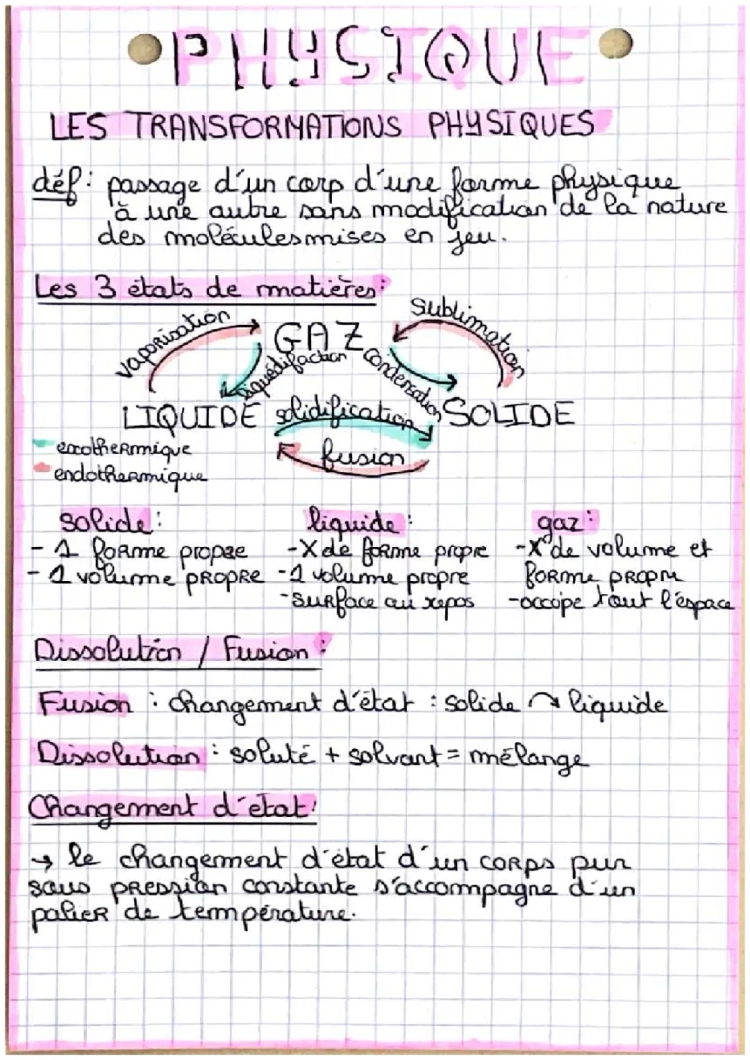 PHYSIQUE
LES TRANSFORMATIONS PHYSIQUES
déf: passage d'un corp d'une forme physique
à une autre sans modification de la nature
des molécules mises en jeu.
Les 3 états de matières:
vaporisation
sublimation
GAZ
liquédifaction
condensation
LIQUIDE
solidification
SOLIDE
exothermique
fusion
endothermique
solide: liquide: gaz:
- 1 forme propre - X de forme propre - X de volume et
- 1 volume propre - 1 volume propre forme propre
- surface au repos - occupe tout l'espace
Dissolution / Fusion:
Fusion : changement d'état : solide ↷ liquide
Dissolution : soluté + solvant = mélange
Changement d'état:
→ le changement d'état d'un corps pur
sous pression constante s'accompagne d'un
palier de température.